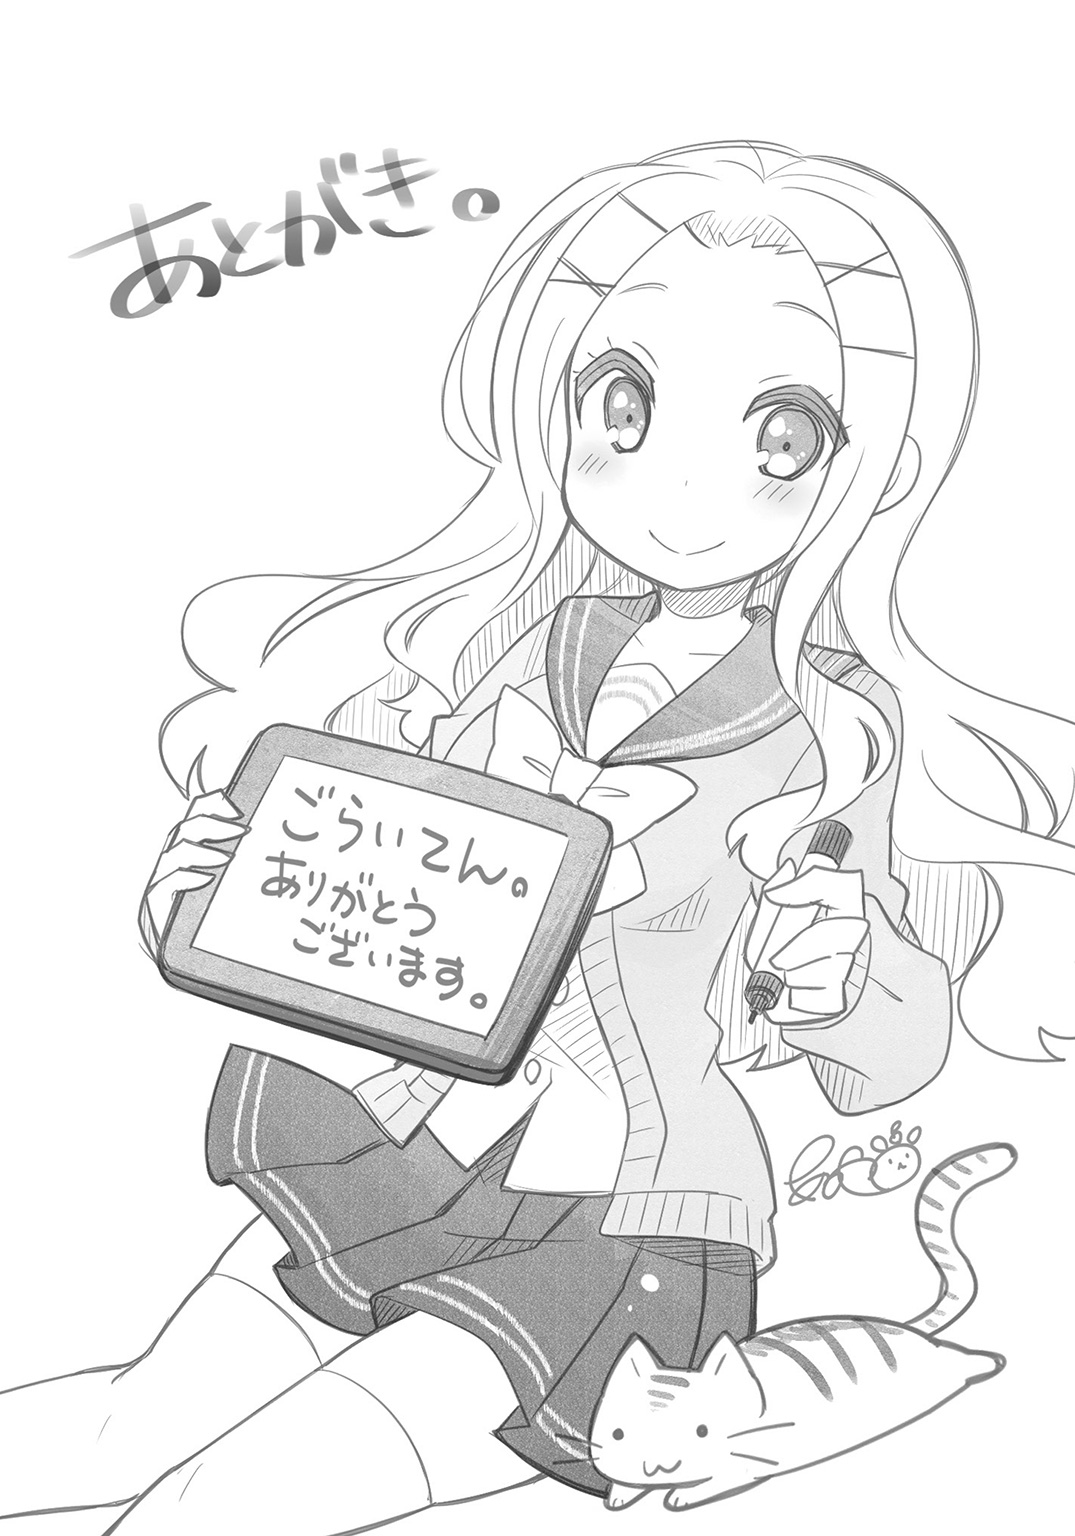 あとがき。
ごらいてん。
ありがとう
ございます。